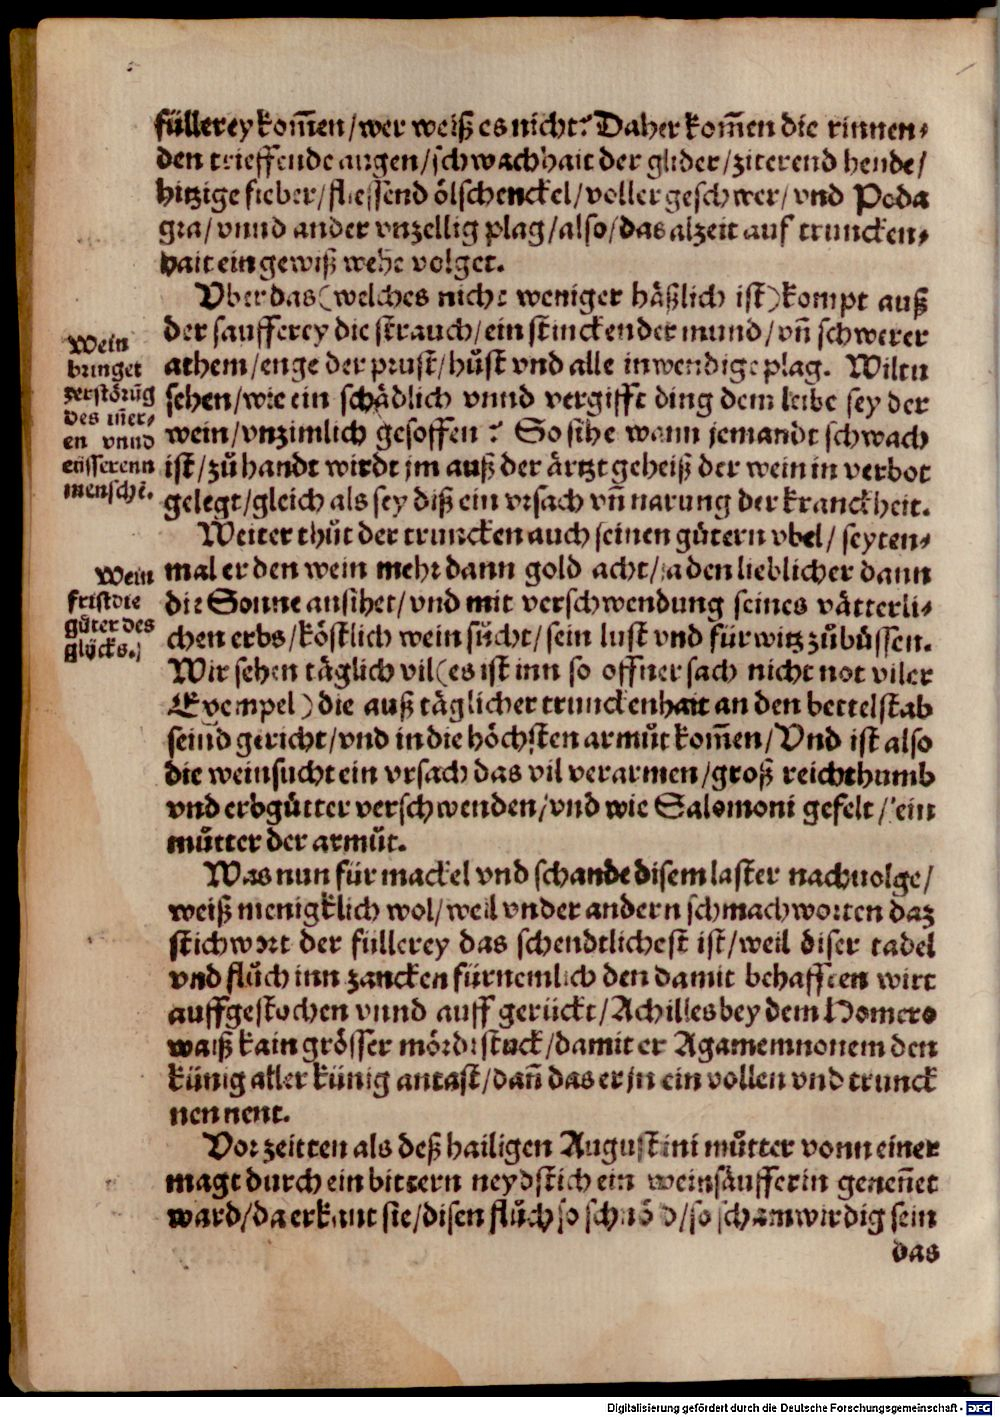 füllerey kom̃en/wer weiß es nicht? Daher kom̃en die rinnen⸗
den trieffende augen/schwachhait der glider/ziterend hende/
hitzige fieber/fliessend ölschenckel/voller geschwer/vnd Poda
gra/vnnd ander vnzellig plag/also/das alzeit auf truncken⸗
hait ein gewiß wehe volget.
Vber das (welches nicht weniger häßlich ist) kompt auß
der saufferey die strauch/ein stinckender mund/vñ schwerer
athem/enge der prust/hůst vnd alle inwendige plag. Wiltu
sehen/wie ein schädlich vnnd vergifft ding dem leibe sey der
wein/vnzimlich gesoffen? So sihe wann jemandt schwach
ist/zů handt wirdt jm auß der ärtzt geheiß der wein in verbot
gelegt/gleich als sey diß ein vrsach vñ narung der kranckheit.
Wein
bringet
zerstörũg
des iñer⸗
en vnnd
eüsserenn
mensche.
Weiter thůt der truncken auch seinen gütern vbel/ seyten⸗
mal er den wein mehr dann gold acht/ja den lieblicher dann
die Sonne ansihet/vnd mit verschwendung seines vätterli⸗
chen erbs/köstlich wein sůcht/sein lust vnd fürwitz zůbüssen.
Wir sehen täglich vil (es ist inn so offner sach nicht not viler
Exempel) die auß täglicher trunckenhait an den bettelstab
seind gericht/vnd in die höchsten armůt kom̃en/Vnd ist also
die weinsucht ein vrsach das vil verarmen/groß reichthumb
vnd erbgütter verschwenden/vnd wie Salomoni gefelt/ein
můtter der armůt.
Wein
frist die
güter des
glücks.
Was nun für mackel vnd schande disem laster nachuolge/
weiß menigklich wol/weil vnder andern schmachworten daz
stichwort der füllerey das schendtlichest ist/weil diser tadel
vnd flůch inn zancken fürnemlich den damit behafften wirt
auffgestochen vnnd auff gerückt/Achilles bey dem Homero
waiß kain grösser mördtstuck/damit er Agamemnonem den
künig aller künig antast/dañ das er jn ein vollen vnd trunck
nen nent.
Vor zeitten als deß hailigen Augustini můtter vonn einer
magt durch ein bittern neydstich ein weinsäufferin geneñet
ward/da erkant sie/disen flůch so schnöd/so schamwirdig sein
das
Digitalisierung gefördert durch die Deutsche Forschungsgemeinschaft - DFG